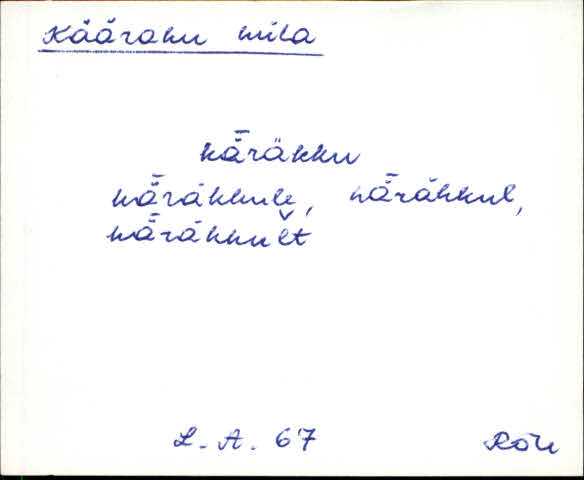 Kääraku küla
kǟräkku
kǟräkkule, kǟräkkul,
kǟräkkult
L. A. 67
Rõu